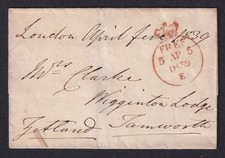 London April five 1839
Mrs Clarke
Wigginton Lodge
Tamworth
Zetland
FREE
5 AP 5
1839
E